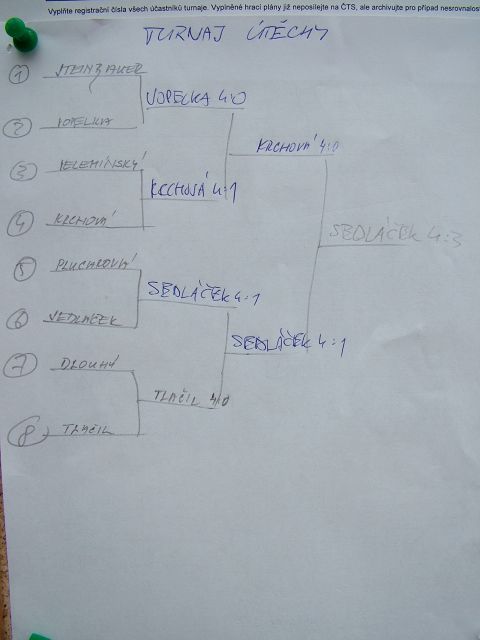 Vyplňte registrační čísla všech účastníků turnaje. Vyplněné hrací plány již neposílejte na ČTS, ale archivujte pro případ nesrovnalos
TURNAJ ÚTĚCHY
1 STEINBAUER
VOPELKA 4:0
2 VOPELKA
KRCHOVÁ 4:0
3 JELEMÍNSKÝ
KRCHOVÁ 4:1
4 KRCHOVÁ
SEDLÁČEK 4:3
5 PLUCHROVÁ
SEDLÁČEK 4:1
6 SEDLÁČEK
SEDLÁČEK 4:1
7 DLOUHÝ
TLAČIL 4:0
8 TLAČIL